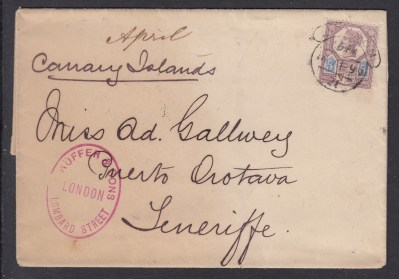 April
Canary Islands
Miss Ad. Gallwey
Puerto Orotava
Teneriffe.
RUFFER & SONS
LONDON
LOMBARD STREET